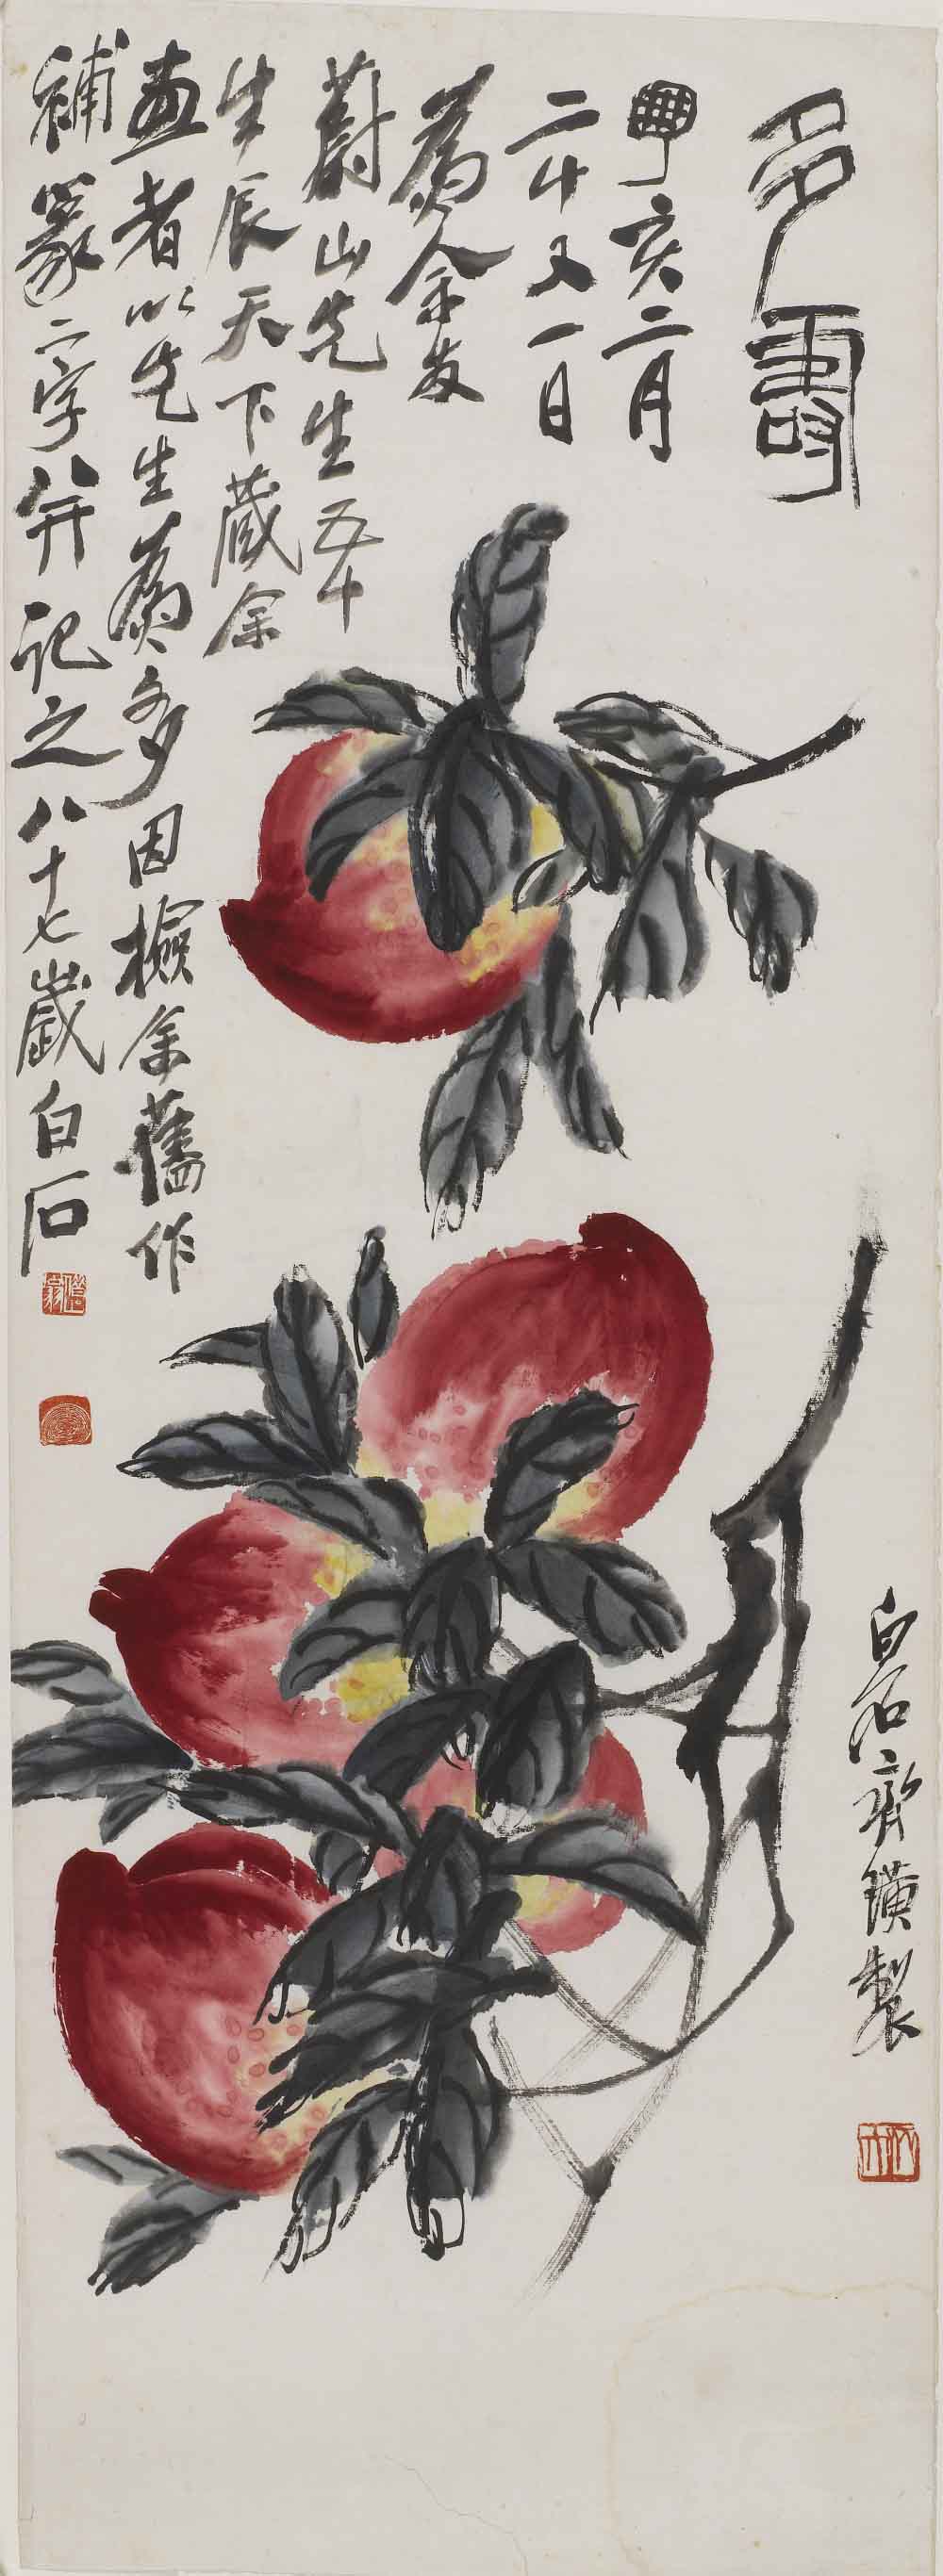 多壽
丁亥二月
二十又一日
為余友
蔚山先生五十
生辰天下藏余
畫者以先生為多因檢余舊作
補篆二字并記之八十七歲白石
白石齊璜製